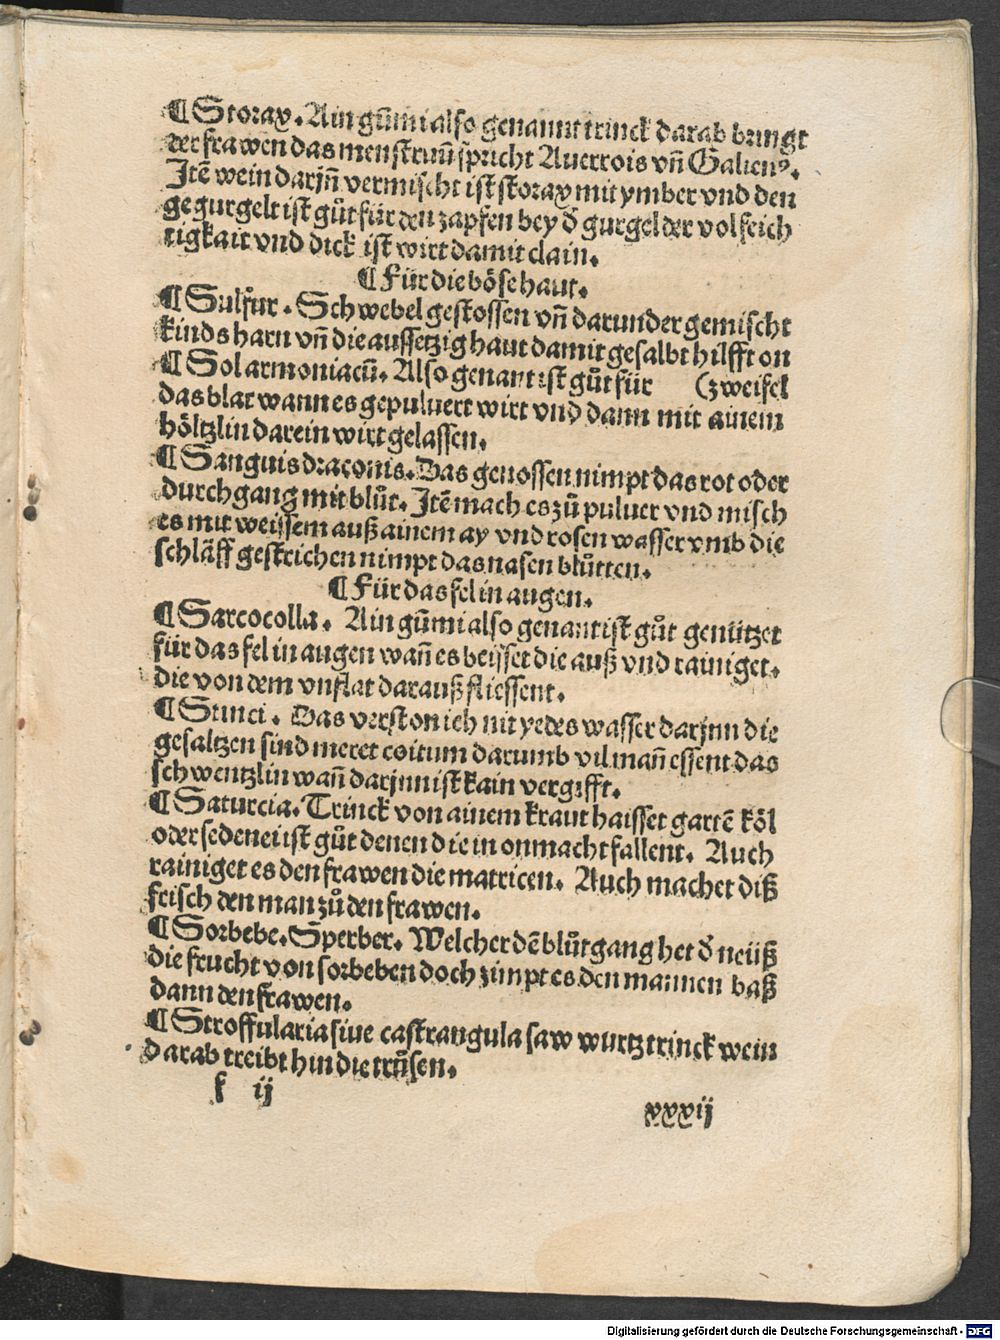 ¶ Storax. Ain gūmi also genannt trinck darab bringt
der frawen das menstruū spricht Auerrois vn̄ Galienꝰ.
Jtē wein darjn̄ vermischt ist storax mit ymber vnd den
gegurgelt ist gůt für den zapfen bey d̕ gurgel der vol feich
tigkait vnd dick ist wirt damit clain.
¶ Für die böse haut.
¶ Sulfur. Schwebel gestossen vn̄ darunder gemischt
kinds harn vn̄ die aussetzig haut damit gesalbt hilfft on
¶ Sol armoniacū. Also genant ist gůt für (zweifel
das blat wann es gepuluert wirt vnd dann mit ainem
höltzlin darein wirt gelassen.
¶ Sanguis draconis. Das genossen nimpt das rot oder
durchgang mit blůt. Jtē mach es zů puluer vnd misch
es mit weissem auß ainem ay vnd rosen wasser vmb die
schläff gestrichen nimpt das nasen blůtten.
¶ Für das fel in augen.
¶ Sarcocolla. Ain gūmi also genant ist gůt genützet
für das fel in augen wan̄ es beisset die auß vnd rainiget.
die von dem vnflat darauß fliessent.
¶ Stinci. Das verston ich nit yedes wasser darjnn die
gesaltzen sind meret coitum darumb vil man̄ essent das
schwentzlin wan̄ darjnn ist kain vergifft.
¶ Satureia. Trinck von ainem kraut haisset gartē köl
oder sedenei ist gůt denen die in onmacht fallent. Auch
rainiget es den frawen die matricen. Auch machet diß
frisch den man zů den frawen.
¶ Sorbebe. Sperber. Welcher dē blůtgang het d̕ neüß
die frucht von sorbeben doch zimpt es den mannen baß
dann den frawen.
¶ Stroffularia siue castrangula saw wurtz trinck wein
darab treibt hin die trůsen.
k ij
xxxij
Digitalisierung gefördert durch die Deutsche Forschungsgemeinschaft - DFG